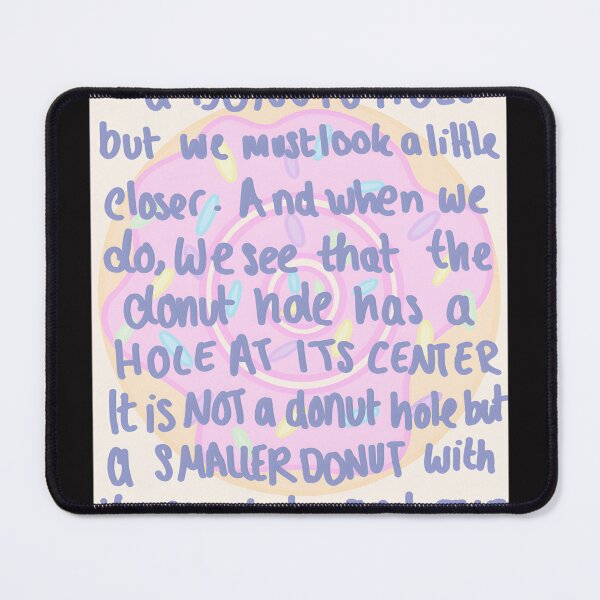 but we must look a little
closer. And when we
do, We see that the
donut hole has a
HOLE AT ITS CENTER
It is NOT a donut hole but
a SMALLER DONUT with